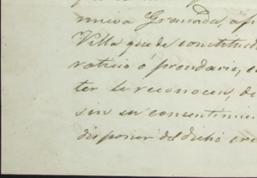 nueva Granada, a fa
Villa quede constituid
raticio ó prendario, e
ter le reconocen, de
sin su consentimie
disponer del dicho cre